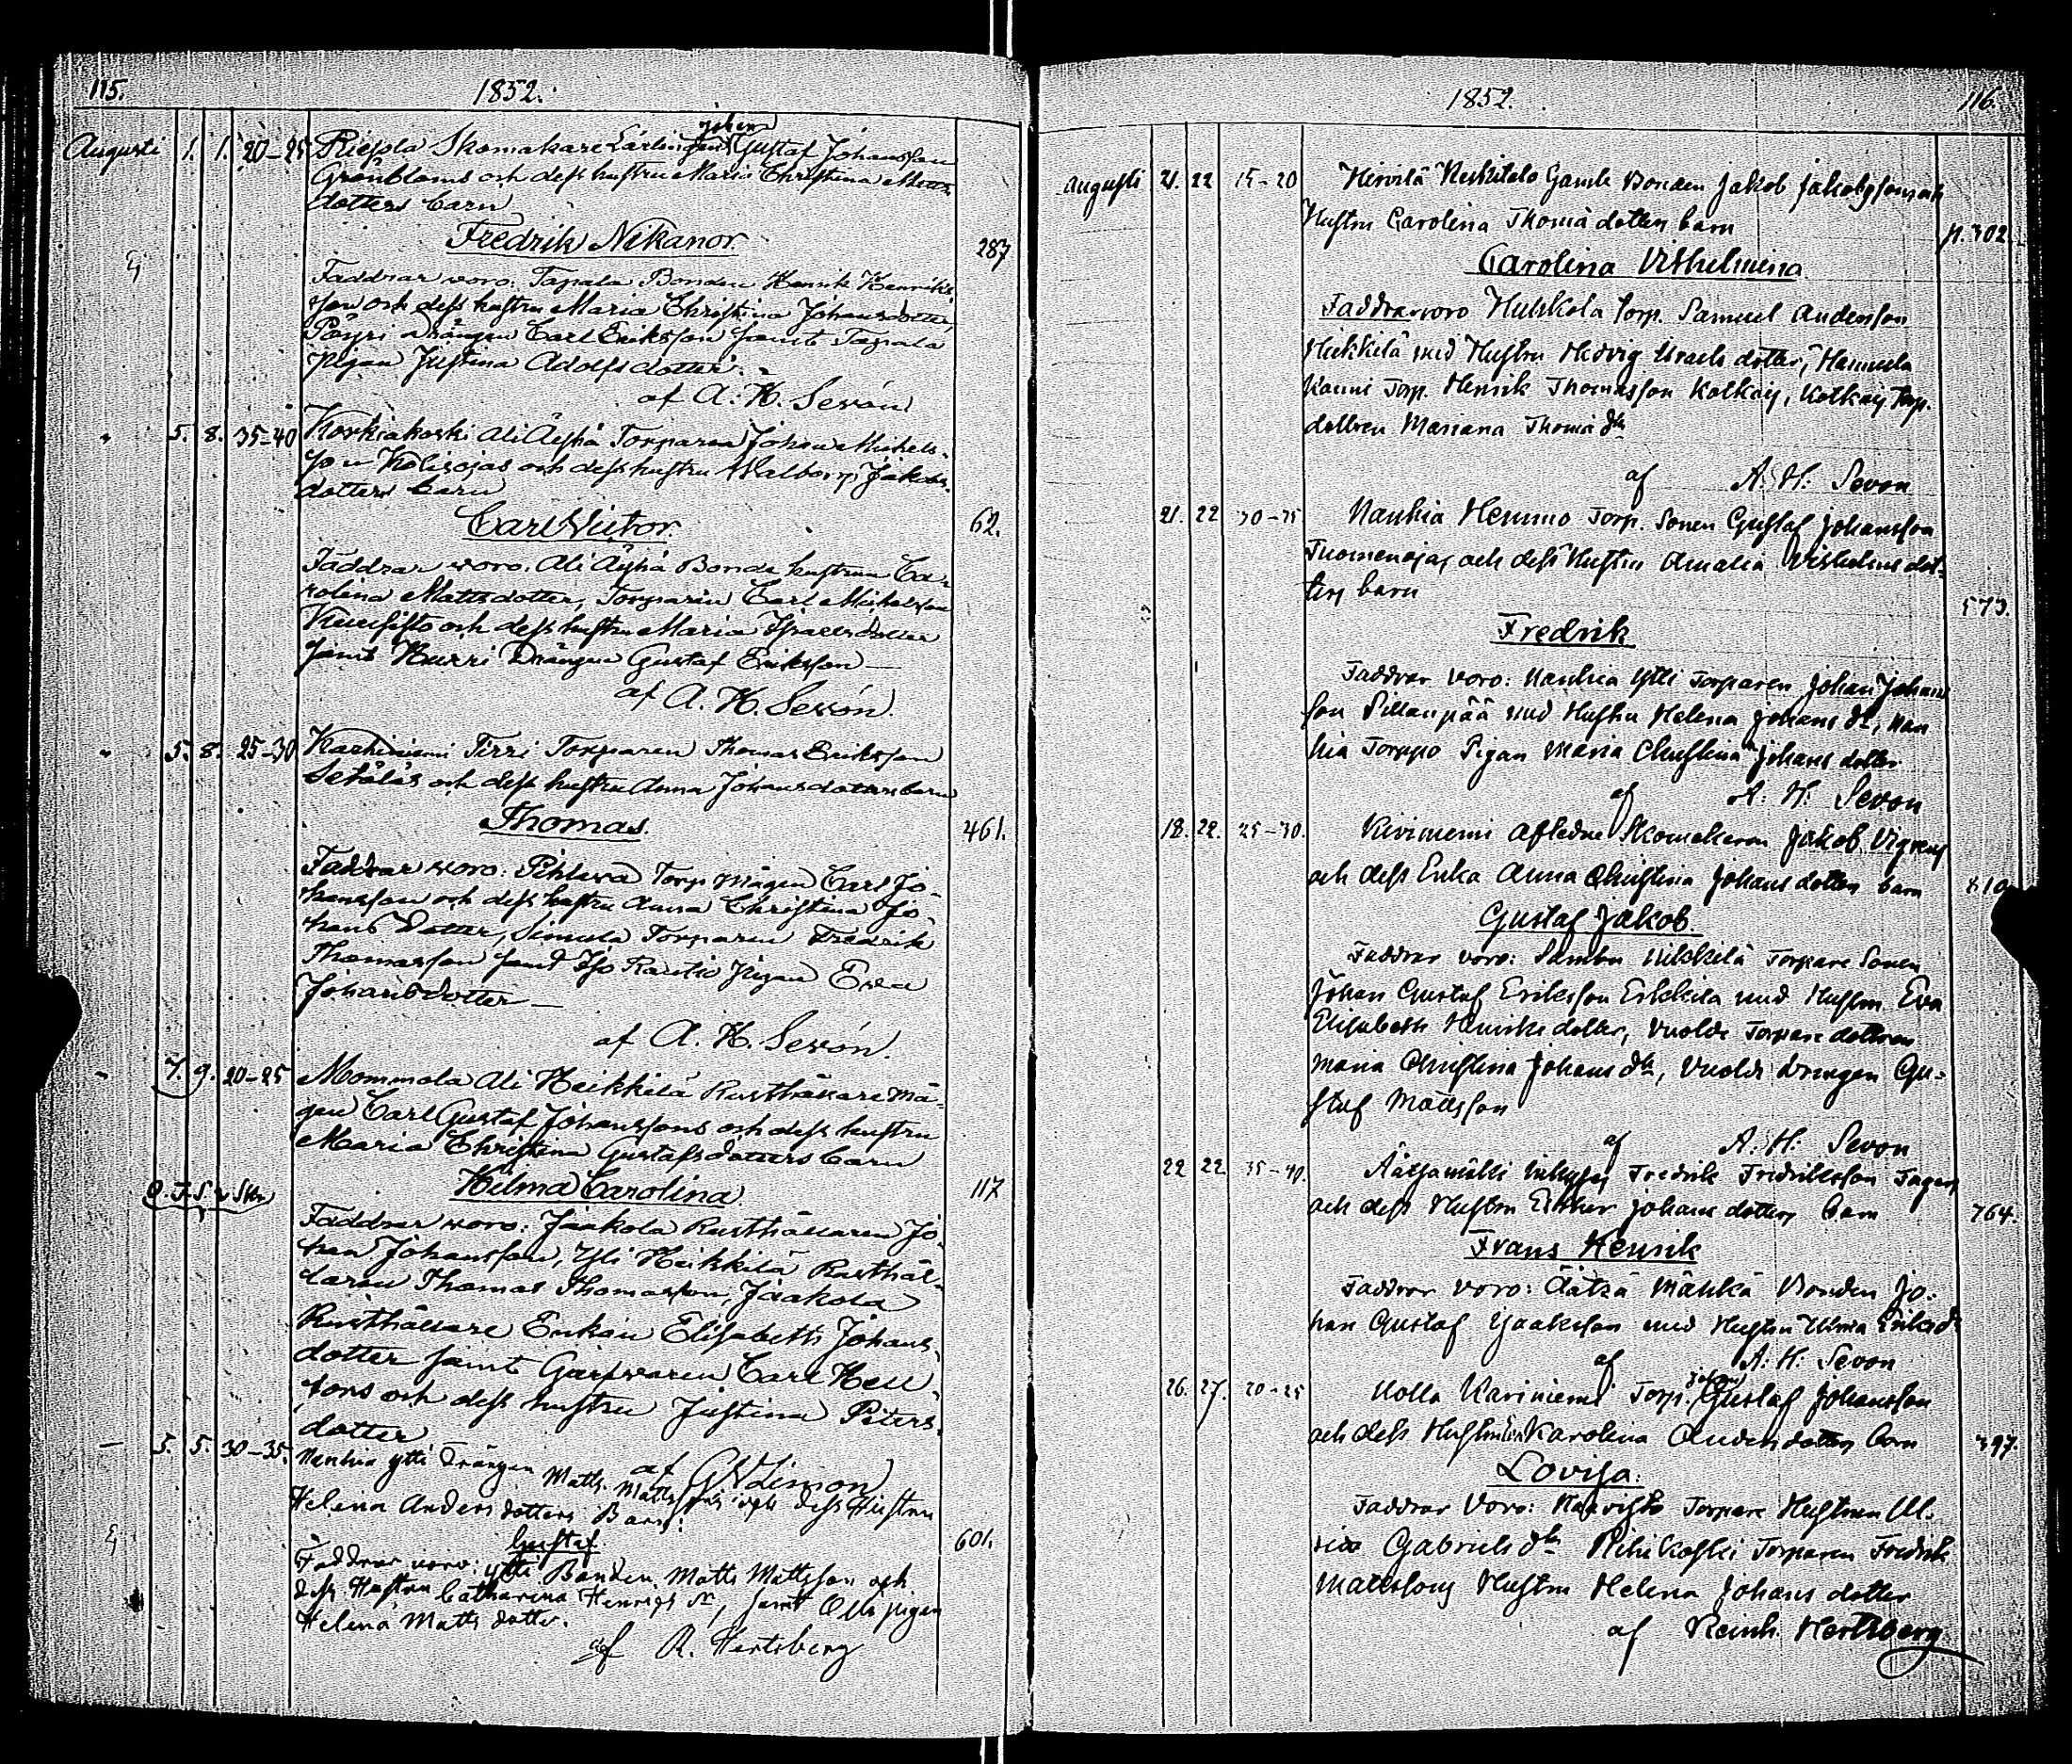 115.
1852.
Augusti 1. 1. 20-25 Riepola Skomakare Lärlingens Johan Gustaf Johansson
Grönbloms och dess hustru Maria Christina Matts
dotters barn
Fredrik Nikanor.
287
Faddrar woro: Tapala Bonden Henrik Henriks
son och dess hustru Maria Christina Johansdotter,
Päyri drängen Carl Eriksson samt Tapala
Pigan Justina Adolfsdotter.
af A. H. Sevón.
" 5. 8. 35-40 Korkiakoski Ali Äijhä Torparen Johan Michels-
son Koliojas och dess hustru Walborg Jakobs-
dotters barn
Carl Victor.
62.
Faddrar woro. Ali Äijhä Bonde hustrun Ca-
rolina Mattsdotter, Torparen Carl Michelsson
och dess hustru Maria Israelsdotter
samt Kurri Drängen Gustaf Eriksson —
af A. H. Sevón.
" 5. 8. 25-30 Karhiniemi Tirri Torparen Thomas Eriksson
Setäläs och dess hustru Anna Johansdotters barn
Thomas.
461.
Faddrar woro: Pihlava Torp. mågen Carl Jo-
hansson och dess hustru Anna Christina Jo-
hans Dotter, Simula Torparen Fredrik
Thomasson samt Iso Rautio Pigan Eva
Johansdotter —
af A. H. Sevón.
- 7. 9. 20-25 Mommola Ali Heikkilä Rusthållare Må-
gen Carl Gustaf Johanssons och dess hustru
Maria Christina Gustafsdotters barn
Hilma Carolina.
117
Faddrar woro: Jaakola Rusthållaren Jo-
han Johansson, Yli Heikkilä Rusthål-
laren Thomas Thomasson, Jaakola
Rusthållare Enkan Elisabeth Johans-
dotter samt Garfvaren Carl Hell-
fors och dess hustru Justina Peters-
dotter
af G. W. Limon
— 5. 5. 30-35. Nanhia ytti Drängen Matts Mattssons och dess Hustru
Helena Anders dotters Barn:
Gustaf.
601.
Faddrar woro: ytti Bonden Matts Mattsson och
dess Hustru Catharina Henrichs dr, samt Olli pigan
Helena Matts dotter.
af R. Hertzberg
1852.
116.
Augusti 21. 22 15-20 Hirvilä Keskitalo Gamle Bonden Jakob Jakobssons och
Hustru Carolina Thomä dotters barn
p. 302
Carolina Vilhelmina
Faddrar voro Huhkola Torp. Samuel Andersson
Heikkilä med Hustru Hedvig Israels dotter, Hannula
Torp. Henrik Thomasson Kotkaj, Kotkaj Torp.
dottren Mariana Thomä dtr
af A. H. Sevon
21. 22 30-35 Nanhia Hemmo Torp. Sonen Gustaf Johansson
Tuomenojas och dess Hustru Amalia Vilhelms dot-
ters barn
573.
Fredrik
Faddrar voro: Nanhia Ytti Torparen Johan Johans
son Sillanpää med Hustru Helena Johans dr, Nan
hia Torppo Pigan Maria Christina Johans dotter
af A. H. Sevon
18. 22. 25-30. Kiviniemi Afledne Skomakaren Jakob Vigrens
och dess Enka Anna Christina Johans dotters barn
810
Gustaf Jakob.
Faddrar voro: Sambu Erkkilä Torpare Sonen
Johan Gustaf Eriksson Erkkilä med Hustru Eva
Elisabeth Henriks dotter, Vuolde Torpare dottren
Maria Christina Johans dtr, Vuolde Drengen Gu-
staf Mattsson
af A. H. Sevon
22 22. 35-40. Fredrik Fredriksson
och dess Hustru Esther Johans dotters barn
764.
Frans Henrik
Faddrar voro: Äätzä Mähkä Bonden Jo-
han Gustaf med Hustru Ulrika Eriks dr
af A. H. Sevon
26. 27. 20-25 Kolla Kariniemi Torp. Johan Gustaf Johansson
och dess Hustru Karolina Anders dotters barn
397.
Lovisa.
Faddrar Voro: Torpare Hustrun Ul-
rica Gabriels dtr Riihikoski Torparen Fredrik
Mattssons Hustru Helena Johans dotter
af Reinh. Hertzberg